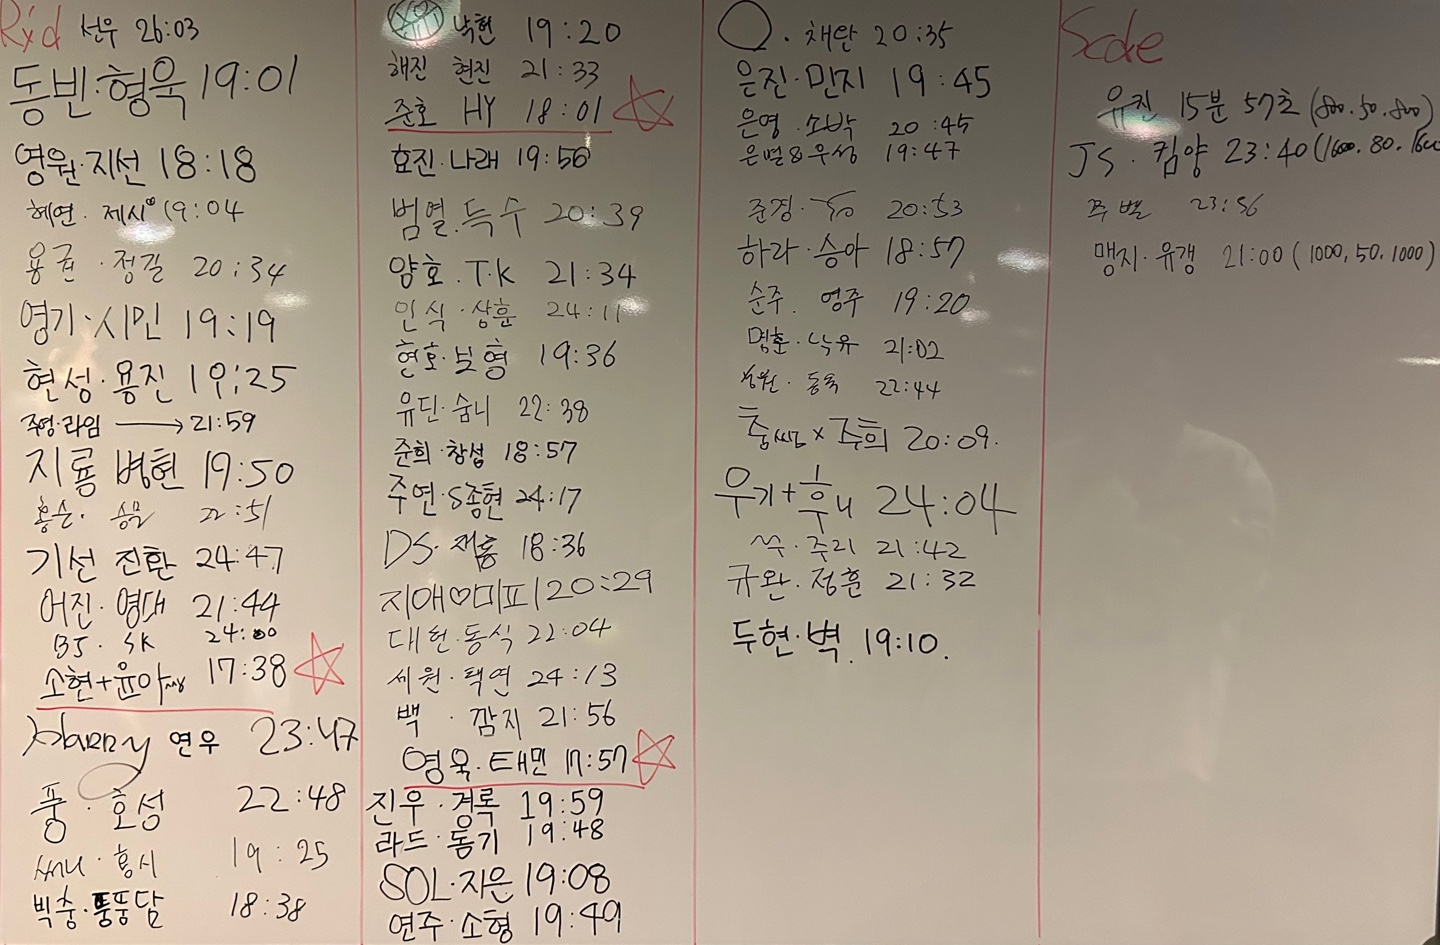 Rxd 선우 26:03
동빈·형욱 19:01
영원·지선 18:18
혜연·제시 19:04
용권·정길 20:34
영기·시민 19:19
현성·용진 19:25
주영·라임 → 21:59
지룡 병현 19:50
22:51
기선 진환 24:47
어진·영대 21:44
BJ·SK 24:00
소현+윤아 17:38
Harry 연우 23:47
풍·호성 22:48
써니·홍시 19:25
빅충·풍담 18:38
낙현 19:20
해진 현진 21:33
준호 HY 18:01
효진·나래 19:56
범열·득수 20:39
양호·T·K 21:34
인식·상훈 24:11
현호·보형 19:36
유딘·숨니 22:38
준희·창섭 18:57
주연·S종현 24:17
DS·재홍 18:36
지애♡미피 20:29
대헌·동식 22:04
세원·택연 24:13
백·깜지 21:56
영욱·태민 17:57
진우·경록 19:59
라드·동기 19:48
SOL·지은 19:08
연주·소형 19:49
채만 20:35
은진·민지 19:45
은영·소박 20:45
은별&우성 19:47
준경 20:53
하라·승아 18:57
순주·영주 19:20
명훈·낙유 21:02
동욱 22:44
충씨×주희 20:09.
우기+후니 24:04
쑥·주리 21:42
규완·정훈 21:32
두현·벽 19:10.
Scale
유진 15분 57초 (800.50.800)
JS·킴양 23:40 (1600.80.1600
23:56
맹지·유갱 21:00 (1000,50,1000)